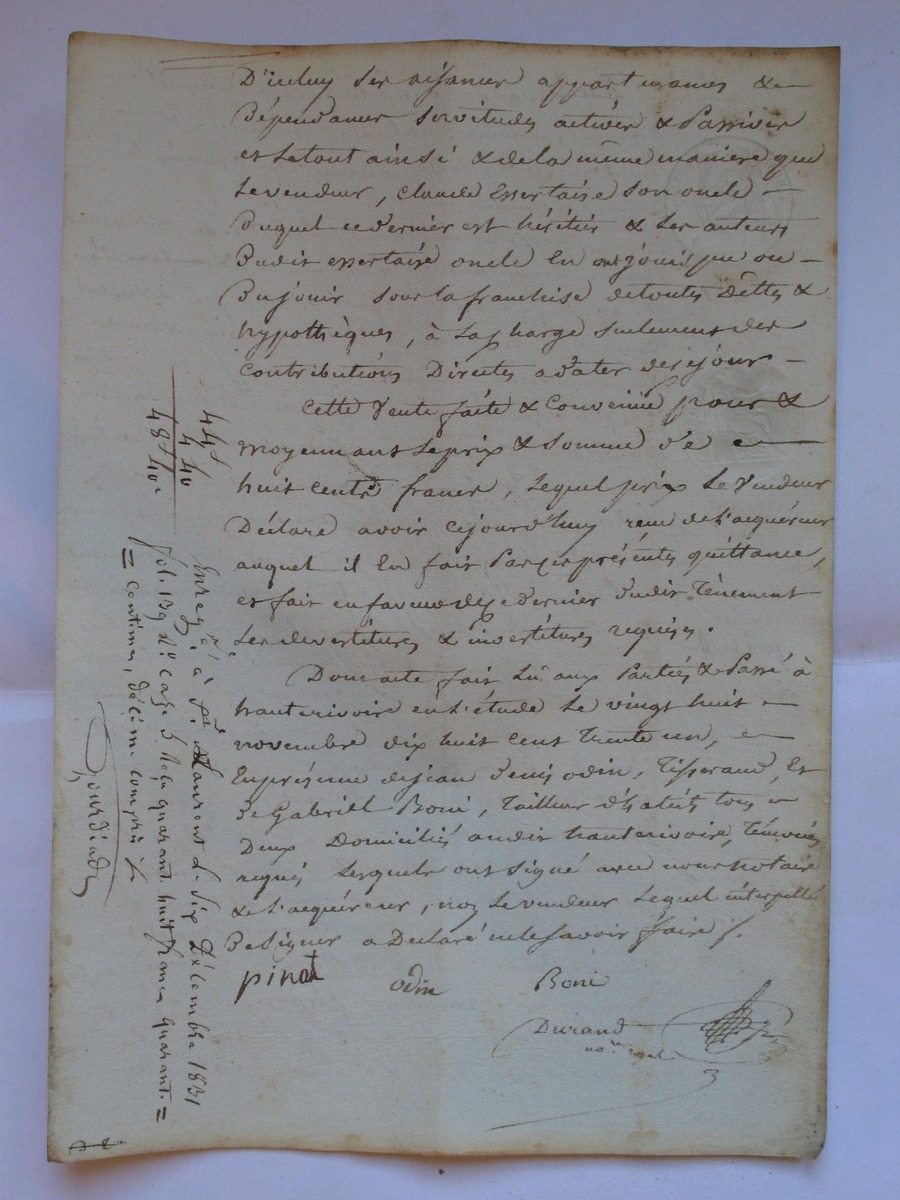 D'iceluy ses aisances appartenances &
Dépendances servitudes actives & Passives
et le tout ainsi & de la même maniere que
Le vendeur, Claude Essertaise son oncle
Duquel ce dernier est héritier & Les auteurs
Dudit essertaise oncle En ont joui pu ou
Du jouir sous la franchise de toutes Dettes &
hypothèques, à La charge seulement des
Contributions Directes a dater de ce jour
Cette Vente faite & Convenue pour &
moyennant Le prix & Somme de
huit cents francs, Lequel prix Le Vendeur
Déclare avoir cejourd'huy reçu de L'acquéreur
auquel il En fait Par ces présentes quittance,
et fait en faveur de ce dernier dudit Tènement
Les devestitures & investitures requises.
Dont acte fait Lu aux Parties & Passé à
hauterivoire en L'étude Le vingt huit
novembre dix huit cent trente un,
En présence de jean Denis odin, Tisserand, Et
De Gabriel Boni, Tailleur d'habits tous
Deux Domiciliés audit hauterivoire, témoins
requis Lesquels ont Signé avec nous notaire
& L'acquéreur, non Le vendeur Lequel interpellé
De Signer a Déclaré ne le savoir faire /.
pinat odin Boni
Durand
no.re royal
44f
4 40
48f 40c
Enreg.é à S.t Laurent Le Six Décembre 1831
fol. 139 r.o case 5 Reçu quarante huit francs quarante =
= centimes, décime compris
Gourdiad